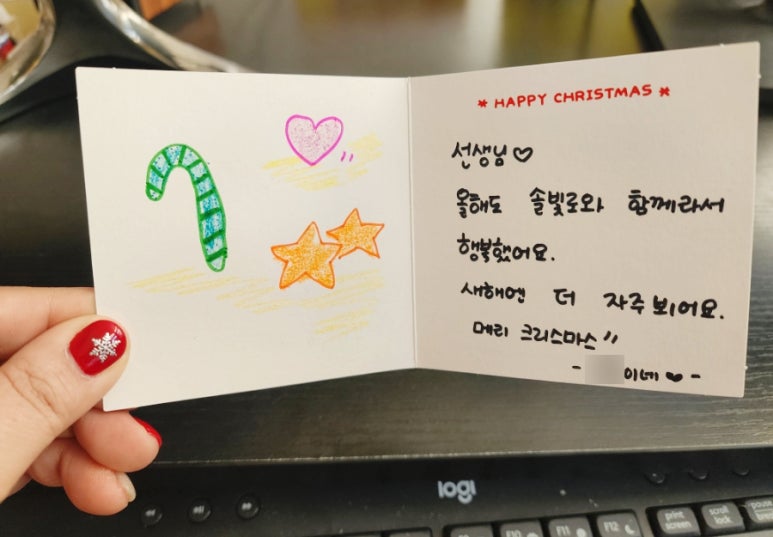 * HAPPY CHRISTMAS *
선생님♡
올해도 솔빛로와 함께라서
행복했어요.
새해엔 더 자주 뵈어요.
메리 크리스마스 〃
- 이네 ♥ -
logi
F10
F11
F12
print screen
scroll lock
pause